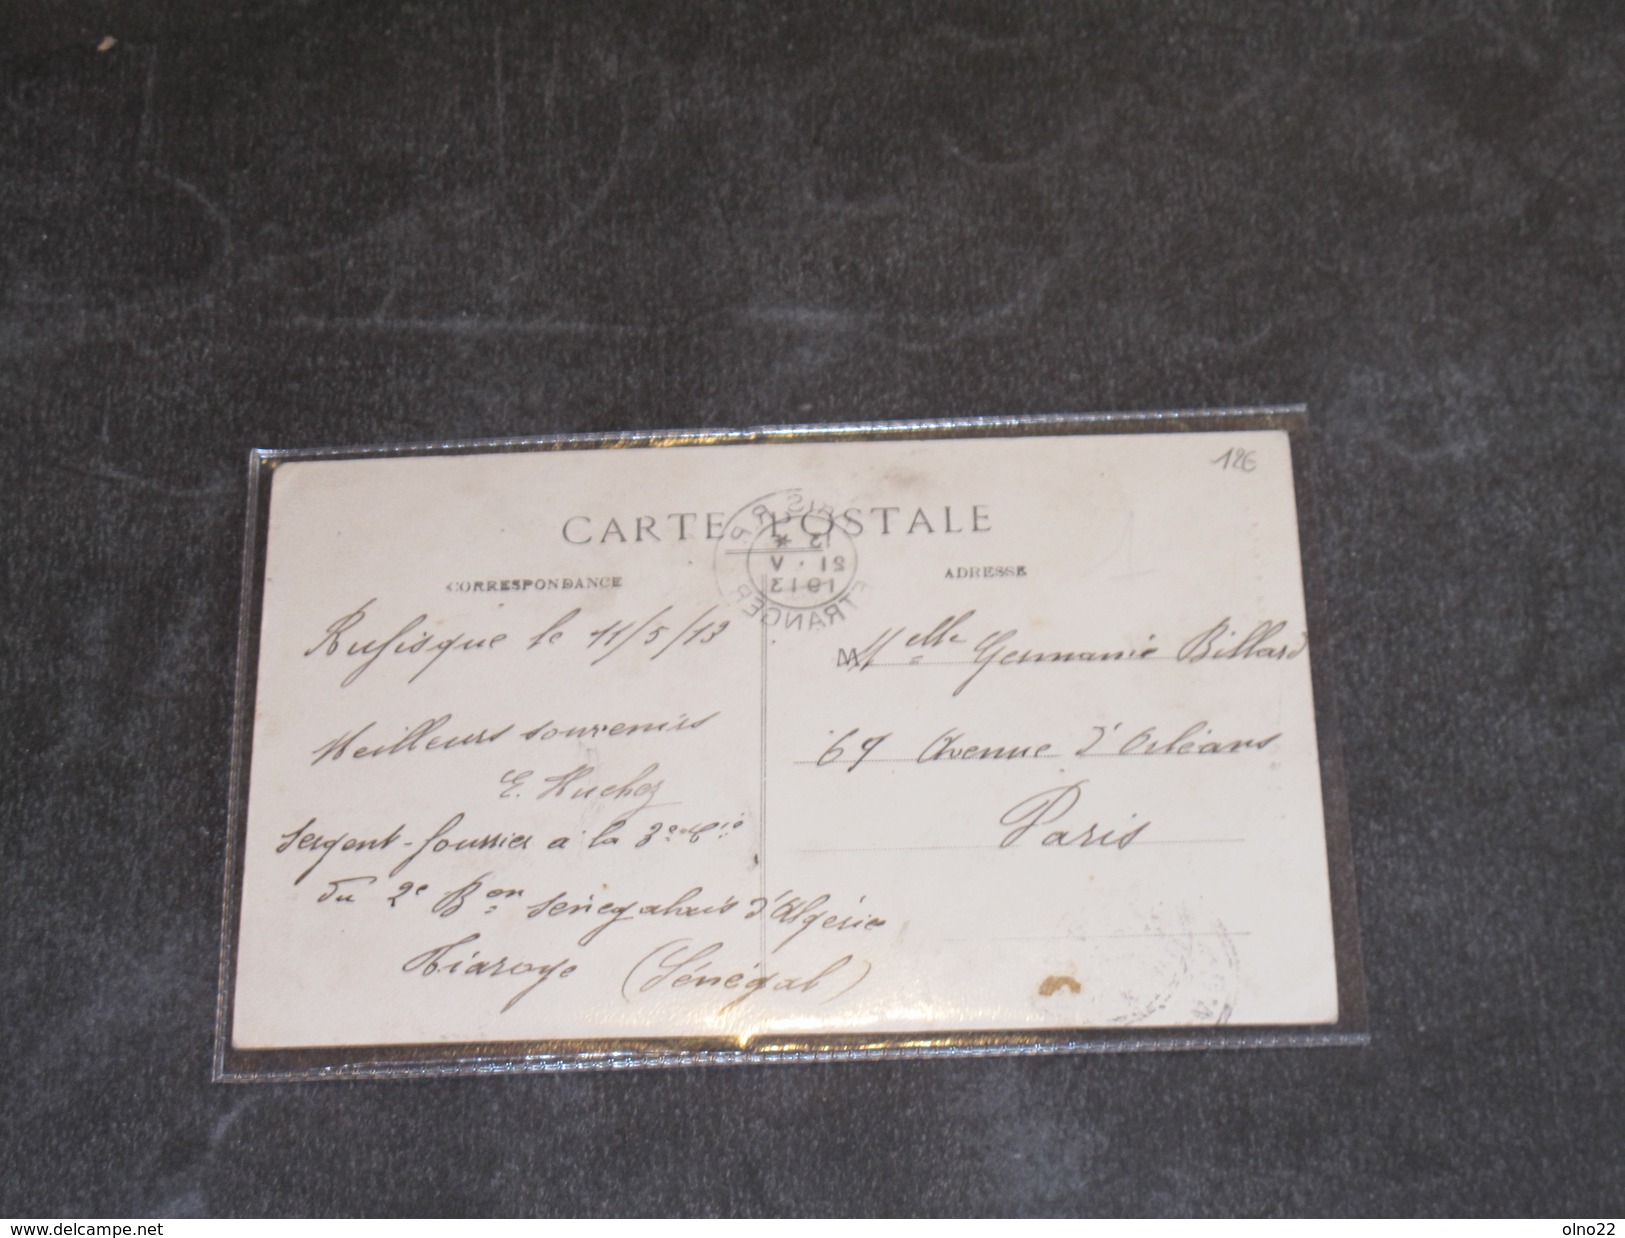 12€
CARTE POSTALE
CORRESPONDANCE
ADRESSE
PARIS R.P.
12 *
21 . V
1913
ETRANGER
Rufisque le 11/5/13
Meilleurs souvenirs
E. Huchez
Sergent-fourrier à la 3e Cie
du 2e Bon Sénégalais d'Algérie
Thiaroye (Sénégal)
Melle Germanie Billard
67 Avenue d'Orléans
Paris
www.delcampe.net
olno22